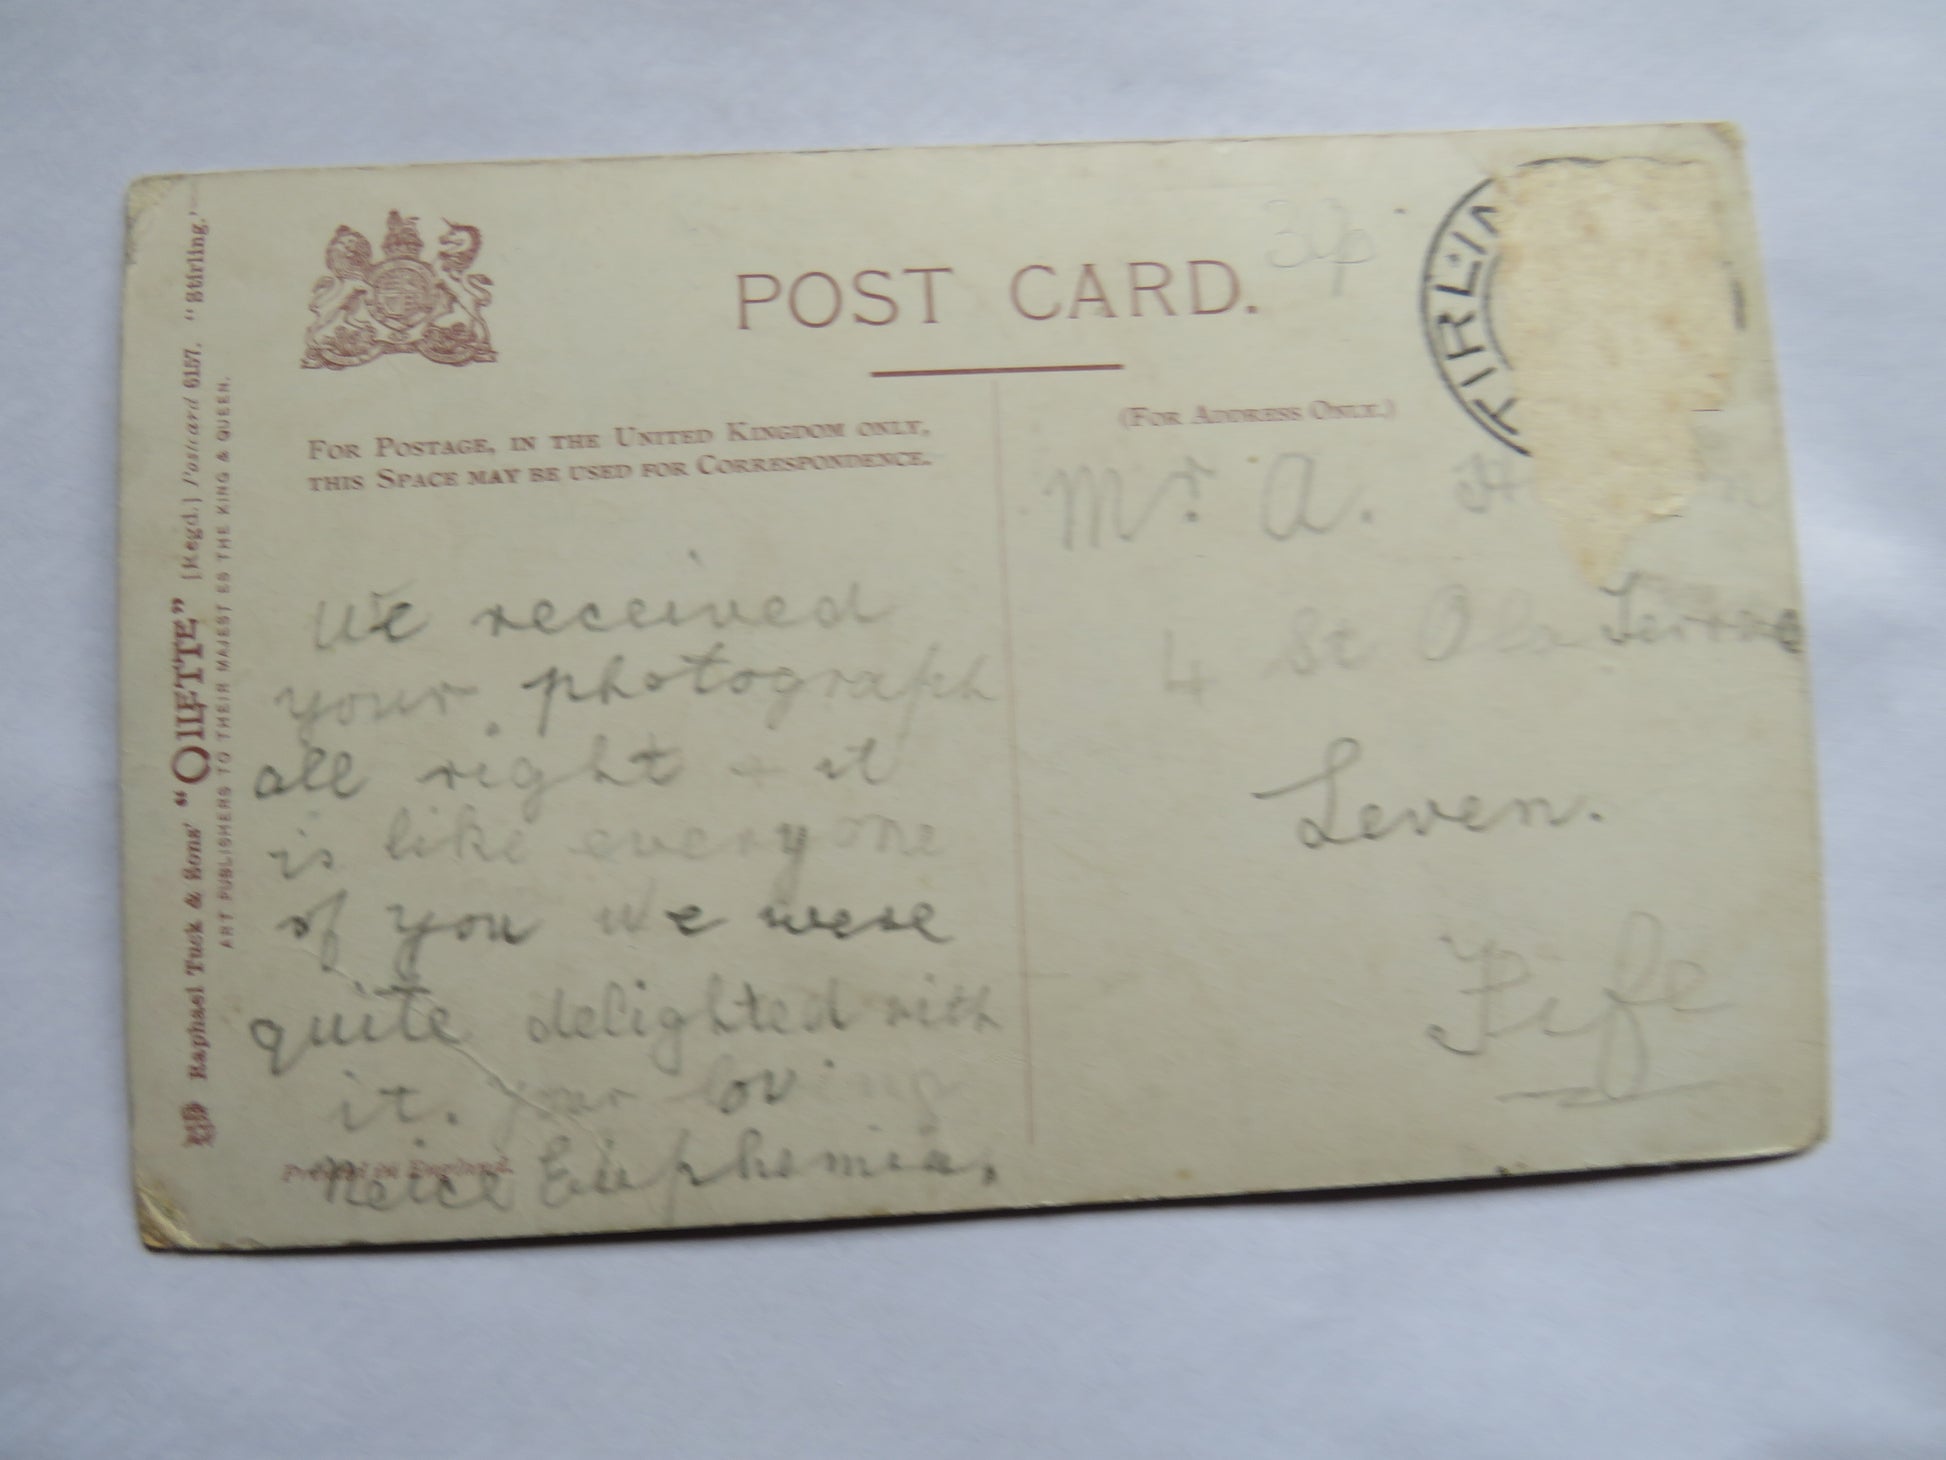 POST CARD.
30p
TIRLIN
FOR POSTAGE, IN THE UNITED KINGDOM ONLY,
THIS SPACE MAY BE USED FOR CORRESPONDENCE.
(FOR ADDRESS ONLY.)
We received
your photograph
all right + it
is like every one
of you we were
quite delighted with
it. your loving
Neice Euphemia.
Printed in England.
Mr. A.
4 St Terrace
Leven.
Fife
Raphael Tuck & Sons' "OILETTE" [Regd.] Postcard 6157. "Stirling,"
ART PUBLISHERS TO THEIR MAJESTIES THE KING & QUEEN.